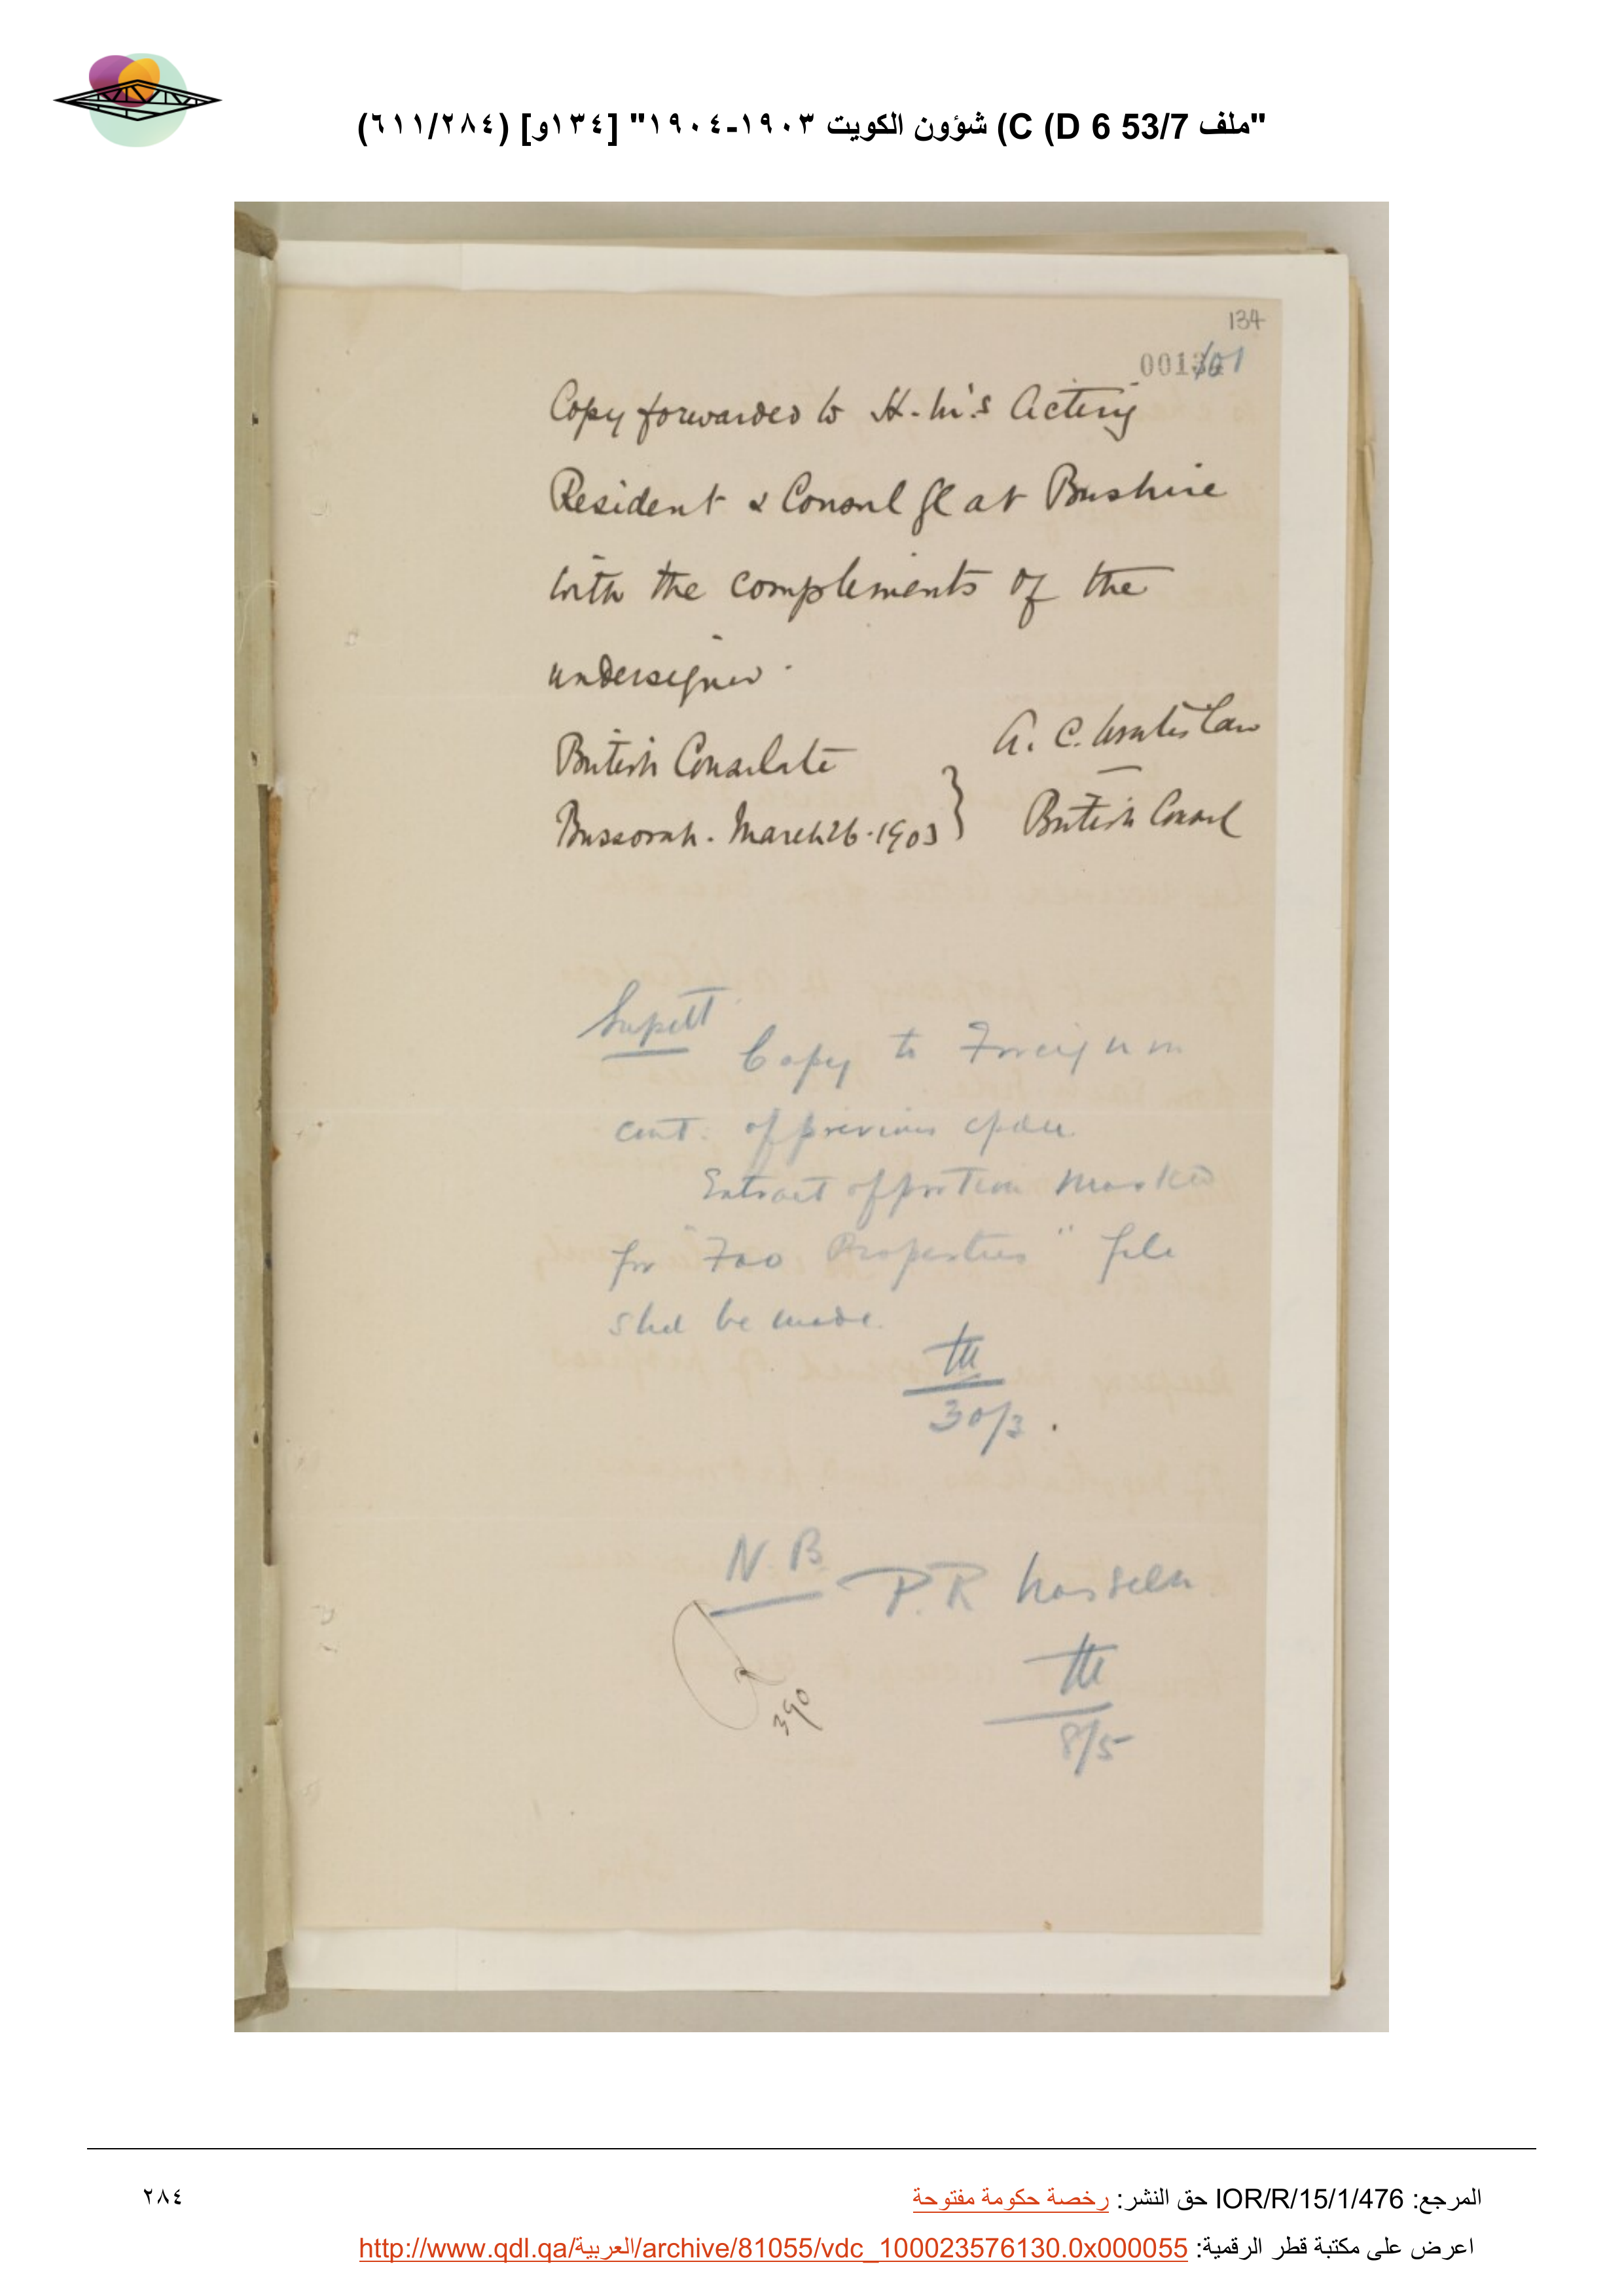 "ملف 53/7 C (D 6) شؤون الكويت ١٩٠٣-١٩٠٤" [١٣٤و] (٦١١/٢٨٤)
134
001
Copy forwarded to H.M's Acting
Resident & Consul Gl at Bushire
with the complements of the
undersigned.
British Consulate
Bussorah. March 26. 1903
A. C. Wratislaw
British Consul
Supdt
Copy to Foreign in
cont. of previous
Extract of portion marked
for "Fao Properties" file
shd be made.
30/3.
N.B.
P.R has seen
8/5
390
المرجع: IOR/R/15/1/476 حق النشر: رخصة حكومة مفتوحة
٢٨٤
اعرض على مكتبة قطر الرقمية: http://www.qdl.qa/العربية/archive/81055/vdc_100023576130.0x000055